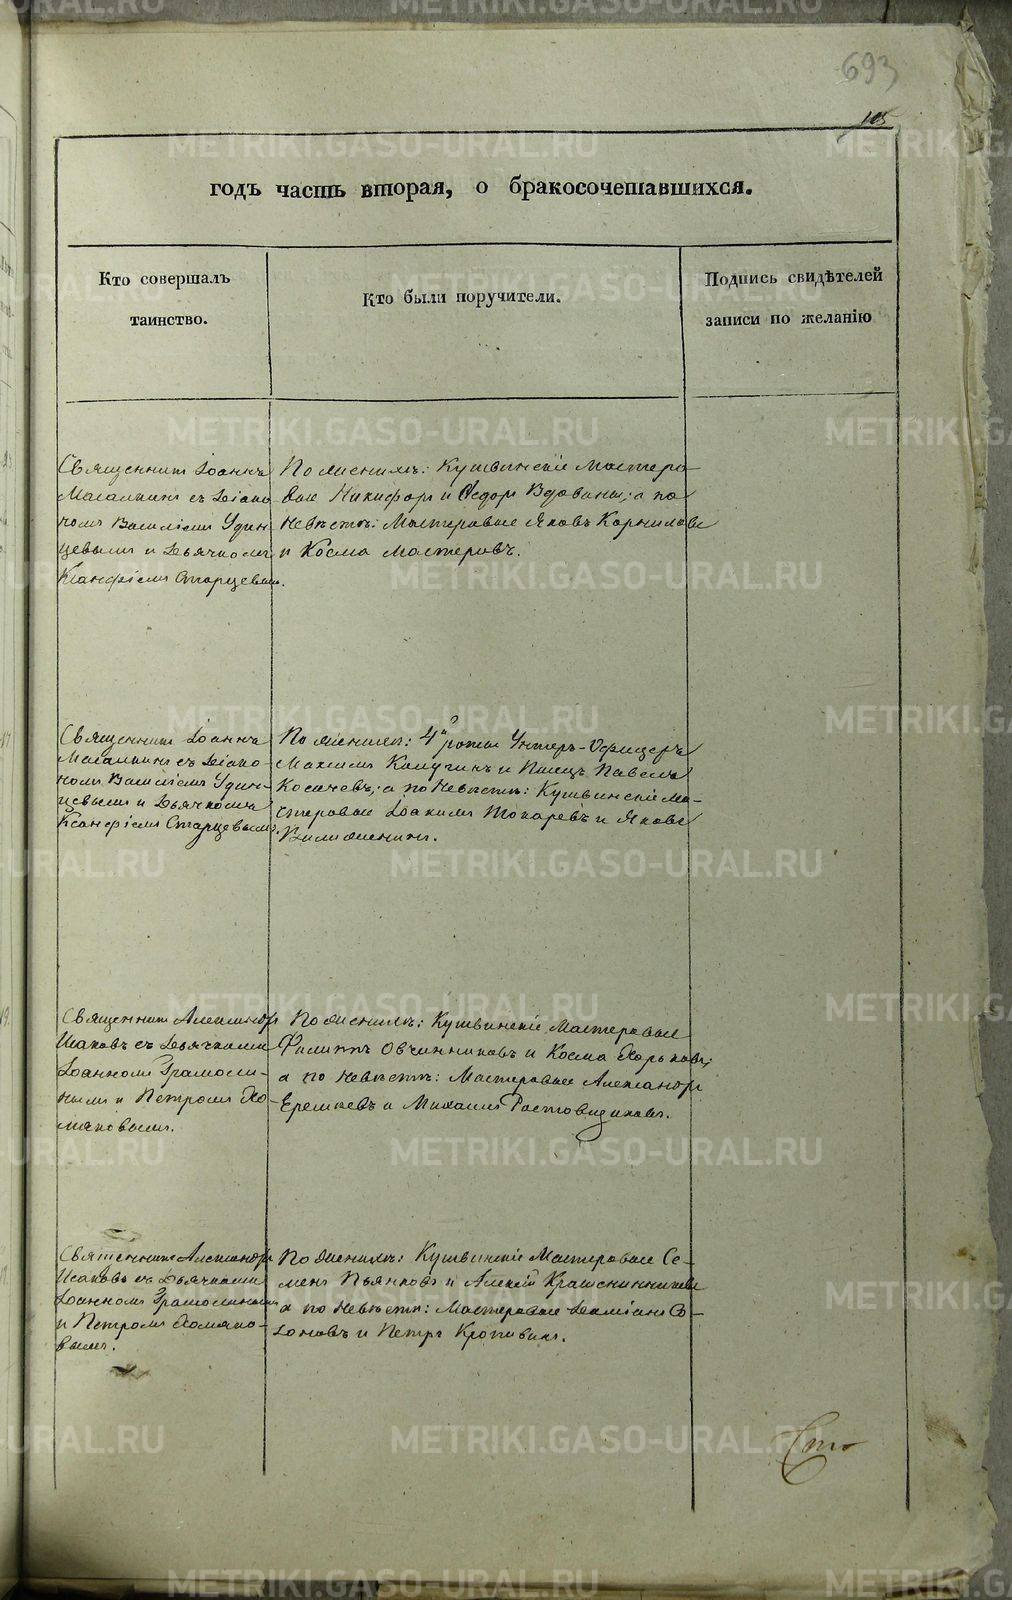 693
105
годъ часть вторая, о бракосочетавшихся.
Кто совершалъ
таинство.
Кто были поручители.
Подпись свидѣтелей
записи по желанію
Священникъ Іоаннъ
съ Діако-
номъ Василіемъ Удин-
цевымъ и Дьячкомъ
Ксанфіемъ Старцевымъ.
По женихѣ: Кушвинскіе Мастеро-
вые Никифоръ и Ѳедоръ Вдовины; а по
невѣстѣ: Мастеровые Яковъ Корниловъ
и Косма Мастеровъ.
Священникъ Іоаннъ
съ Діако-
номъ Василіемъ Удин-
цевымъ и Дьячкомъ
Ксанфіемъ Старцевымъ.
По женихѣ: 4й роты Унтеръ-Офицеръ
Максимъ Калугинъ и Писецъ Павелъ
Косачевъ; а по невѣстѣ: Кушвинскіе Ма-
стеровые Іоакимъ Токаревъ и Яковъ
Священникъ Александръ
Исаковъ съ Дьячками
Іоанномъ Грамолин-
нымъ и Петромъ Хо-
мяковымъ.
По женихѣ: Кушвинскіе Мастеровые
Филиппъ Овчинниковъ и Косма Харьковъ;
а по невѣстѣ: Мастеровые Александръ
и Михаилъ
Священникъ Александръ
Исаковъ съ Дьячками
Іоанномъ Грамолинымъ
и Петромъ Хомяко-
вымъ.
По женихѣ: Кушвинскіе Мастеровые Се-
менъ Пьянковъ и Алексѣй Крашенинниковъ
а по невѣстѣ: Мастеровые Даміанъ Со-
лоновъ и Петръ Кропивинъ.
Сто
METRIKI.GASO-URAL.RU